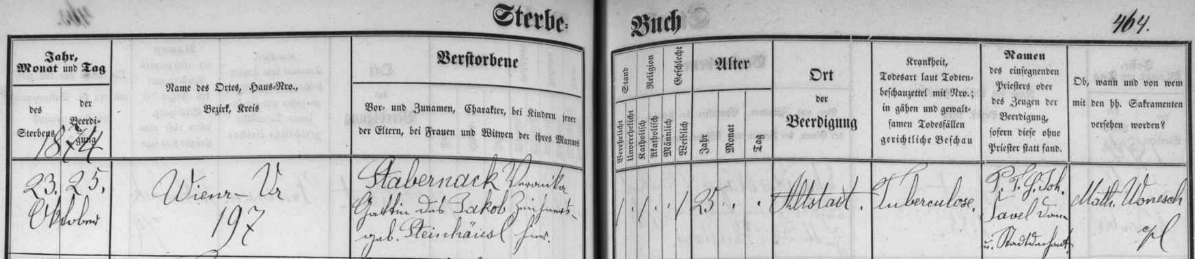 Sterbe-Buch
464.
Jahr,
Monat und Tag
des
Sterbens
der
Beerdi-
gung
Name des Ortes, Haus-Nro.,
Bezirk, Kreis
Verstorbene
Vor- und Zunamen, Charakter, bei Kindern jener
der Eltern, bei Frauen und Witwen der ihres Mannes
Stand
Verehelicht
Unverehelicht
Religion
Katholisch
Akatholisch
Geschlecht
Männlich
Weiblich
Alter
Jahr
Monat
Tag
Ort
der
Beerdigung
Krankheit,
Todesart laut Todten-
beschauzettel mit Nro.;
in gähen und gewalt-
samen Todesfällen
gerichtliche Beschau
Namen
des einsegnenden
Priesters oder
des Zeugen der
Beerdigung,
sofern diese ohne
Priester statt fand.
Ob, wann und von wem
mit den hh. Sakramenten
versehen worden?
1874
23. 25.
Oktober
197
Stabernack Veronika
Gattin des Jakob
geb. Steinhäusl
25
Altstadt
Tuberculose.
P. T. H. Joh.
Pavel Dom
u. Stadtdechant
Math.